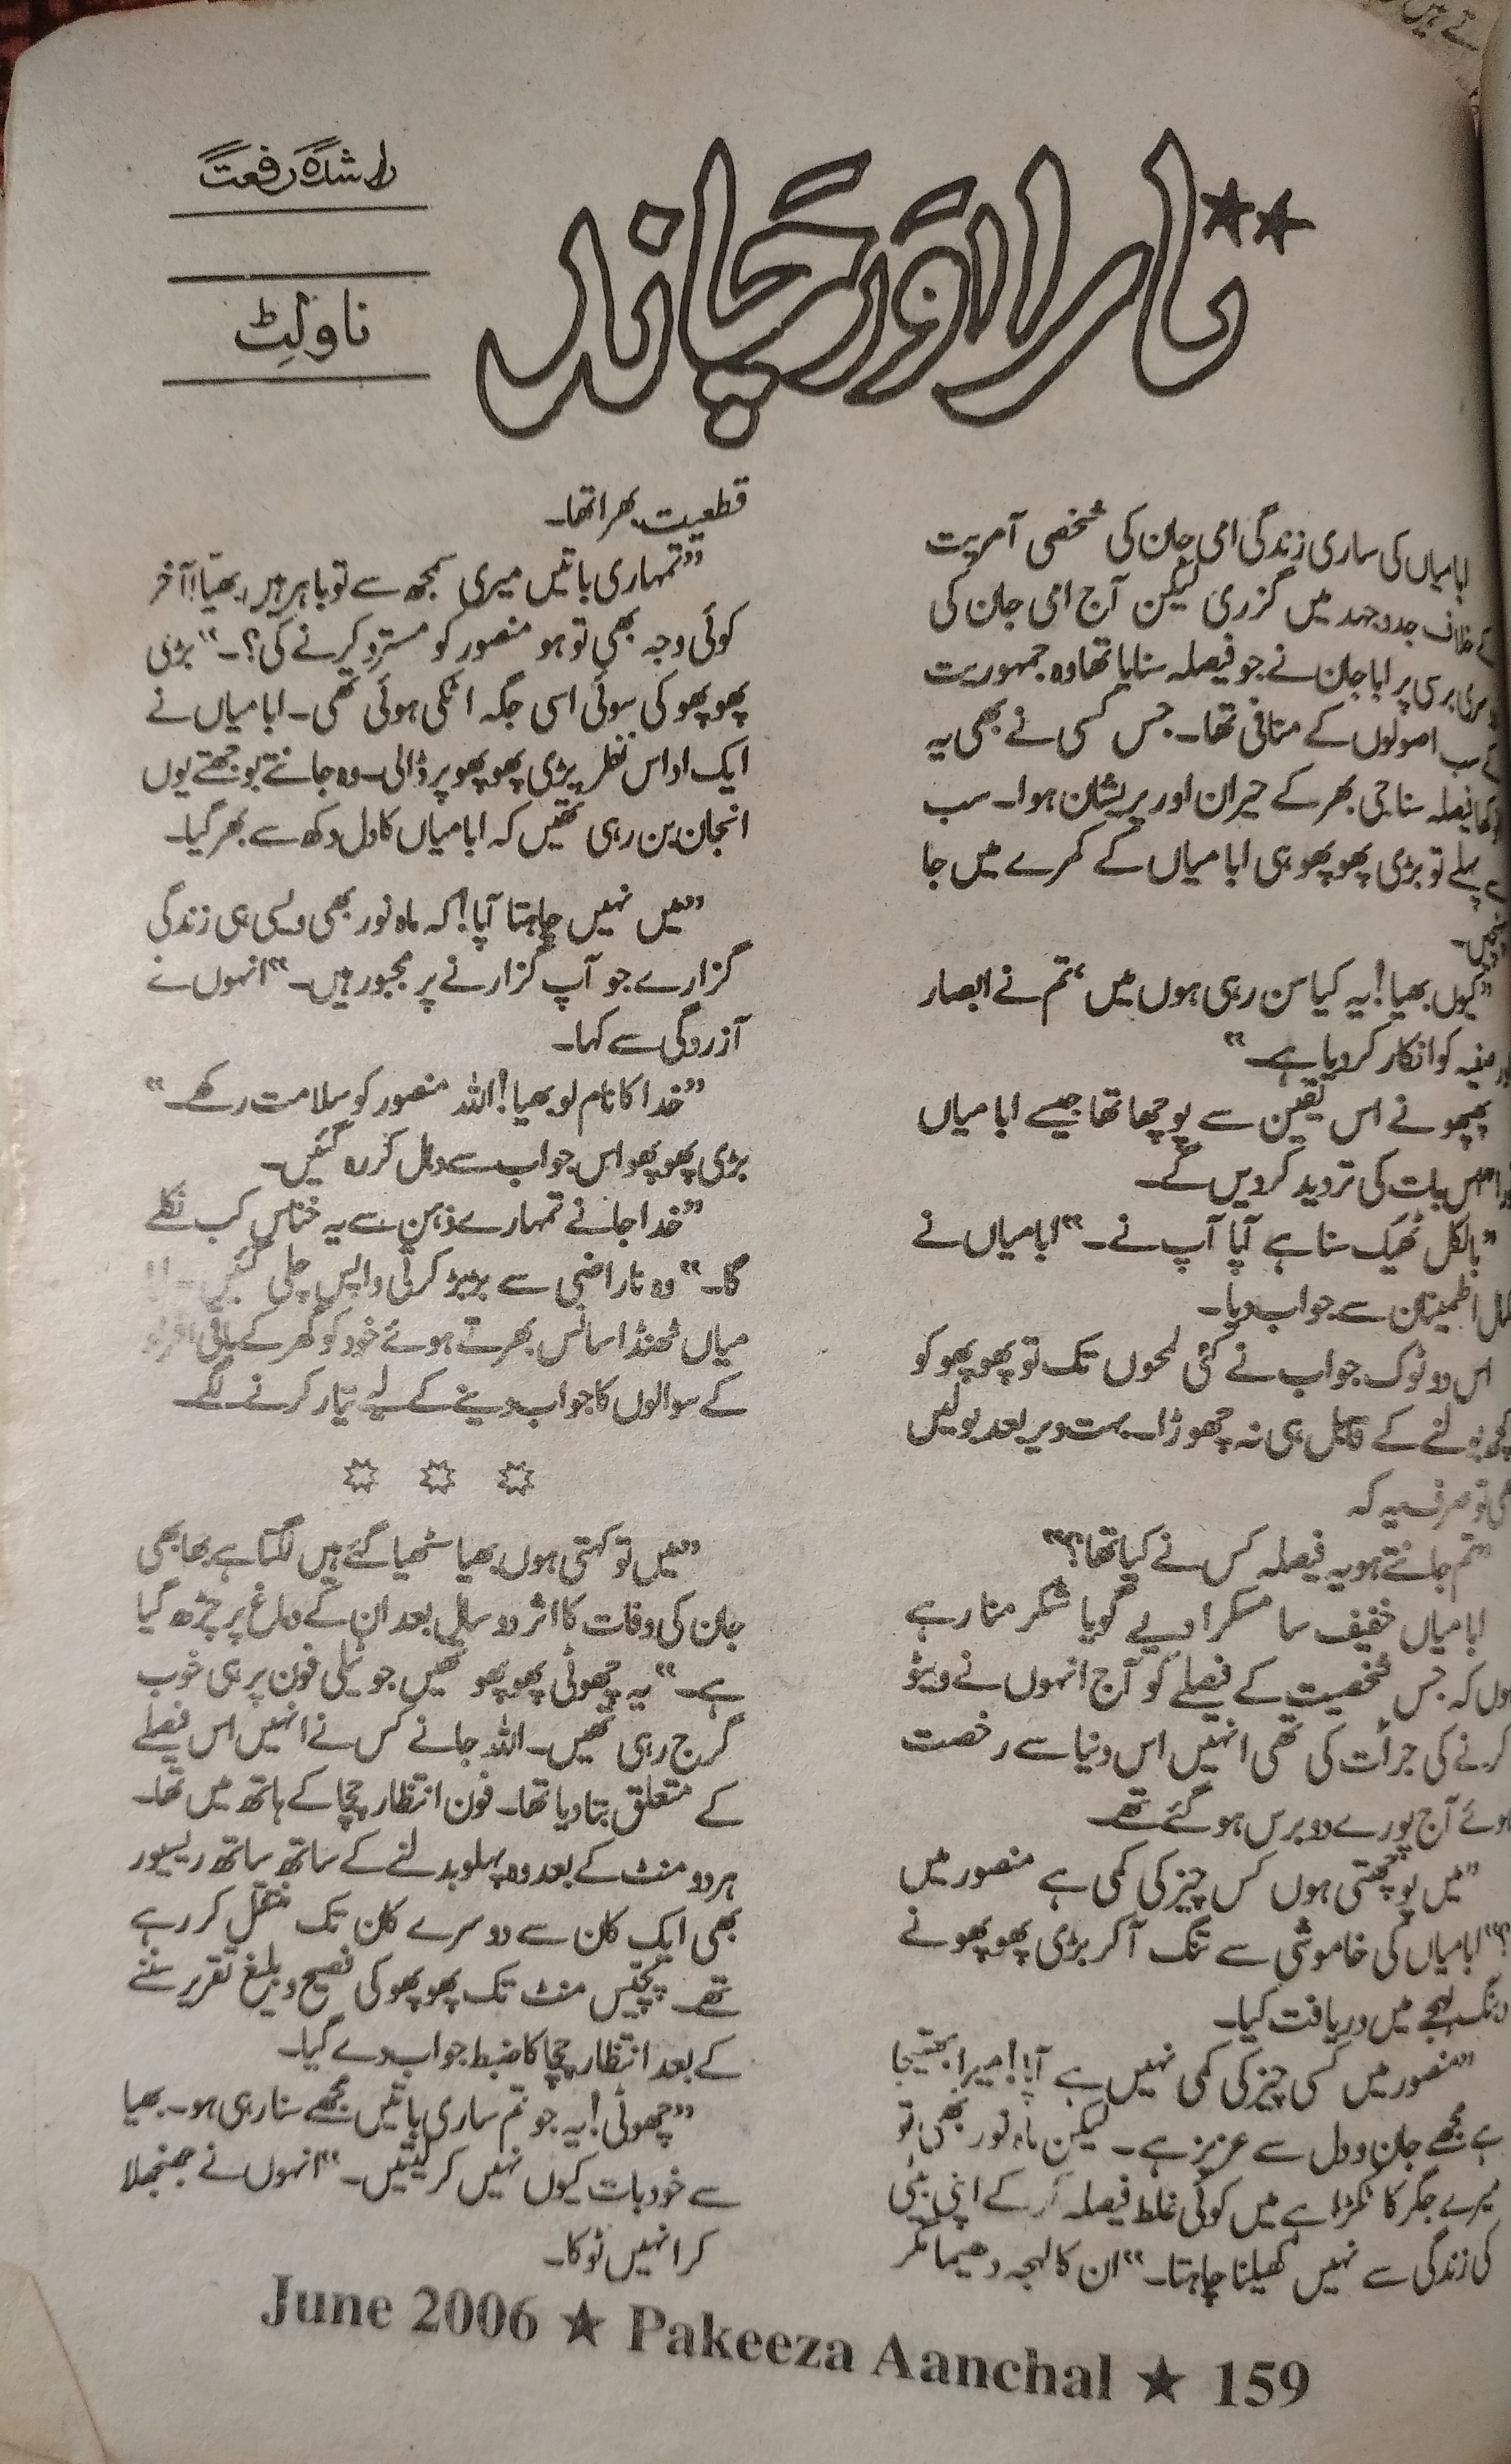 تارا اور چاند
راشدہ رفعت
ناولٹ
ابا میاں کی ساری زندگی امی جان کی شخصی آمریت
کے خلاف جدوجہد میں گزری لیکن آج امی جان کی
برسی پر ابا جان نے جو فیصلہ سنایا تھا وہ جمہوریت
کے سب اصولوں کے منافی تھا۔ جس کسی نے بھی یہ
فیصلہ سنا جی بھر کے حیران اور پریشان ہوا۔ سب
سے پہلے تو بڑی پھوپھو ہی ابا میاں کے کمرے میں جا
"کیوں بھیا! یہ کیا سن رہی ہوں میں، تم نے ابصار
کو انکار کر دیا ہے۔"
پھپھو نے اس یقین سے پوچھا تھا جیسے ابا میاں
اس بات کی تردید کر دیں گے۔
"بالکل ٹھیک سنا ہے آپا آپ نے۔" ابا میاں نے
کمال اطمینان سے جواب دیا۔
اس دو ٹوک جواب نے کئی لمحوں تک تو پھوپھو کو
کچھ بولنے کے قابل ہی نہ چھوڑا۔ بہت دیر بعد بولیں
تو صرف یہ کہ
"تم جانتے ہو یہ فیصلہ کس نے کیا تھا؟"
ابا میاں خفیف سا مسکرا دیے گویا شکر منا رہے
ہوں کہ جس شخصیت کے فیصلے کو آج انہوں نے ویٹو
کرنے کی جرأت کی تھی انہیں اس دنیا سے رخصت
ہوئے آج پورے دو برس ہو گئے تھے۔
"میں پوچھتی ہوں کس چیز کی کمی ہے منصور میں
؟" ابا میاں کی خاموشی سے تنگ آ کر بڑی پھوپھو نے
لہجے میں دریافت کیا۔
"منصور میں کسی چیز کی کمی نہیں ہے آپا! میرا بھتیجا
ہے مجھے جان و دل سے عزیز ہے۔ لیکن ماہ نور بھی تو
میرے جگر کا ٹکڑا ہے میں کوئی غلط فیصلہ کر کے اپنی بیٹی
کی زندگی سے نہیں کھیلنا چاہتا۔" ان کا لہجہ دھیما مگر
قطعیت بھرا تھا۔
"تمہاری باتیں میری سمجھ سے تو باہر ہیں، بھیا! آخر
کوئی وجہ بھی تو ہو منصور کو مسترد کرنے کی؟۔" بڑی
پھوپھو کی سوئی اسی جگہ اٹکی ہوئی تھی۔ ابا میاں نے
ایک اداس نظر بڑی پھوپھو پر ڈالی۔ وہ جانتے بوجھتے یوں
انجان بن رہی تھیں کہ ابا میاں کا دل دکھ سے بھر گیا۔
"میں نہیں چاہتا آپا! کہ ماہ نور بھی ویسی ہی زندگی
گزارے جو آپ گزارنے پر مجبور ہیں۔" انہوں نے
آزردگی سے کہا۔
"خدا کا نام لو بھیا! اللہ منصور کو سلامت رکھے۔"
بڑی پھوپھو اس جواب سے دہل کر رہ گئیں۔
"خدا جانے تمہارے ذہن سے یہ خناس کب نکلے
گا۔" وہ ناراضی سے بڑبڑ کرتی واپس چلی گئیں۔ ابا
میاں ٹھنڈا سانس بھرتے ہوئے خود کو گھر کے باقی افراد
کے سوالوں کا جواب دینے کے لیے تیار کرنے لگے۔
"میں تو کہتی ہوں بھیا سٹھیا گئے ہیں لگتا ہے بھابھی
جان کی وفات کا اثر دو سال بعد ان کے دماغ پر چڑھ گیا
ہے۔" یہ چھوٹی پھوپھو تھیں جو ٹیلی فون پر ہی خوب
گرج رہی تھیں۔ اللہ جانے کس نے انہیں اس فیصلے
کے متعلق بتا دیا تھا۔ فون انتظار چچا کے ہاتھ میں تھا۔
ہر دو منٹ کے بعد وہ پہلو بدلنے کے ساتھ ساتھ ریسیور
بھی ایک کان سے دوسرے کان تک منتقل کر رہے
تھے۔ پچیس منٹ تک پھوپھو کی فصیح و بلیغ تقریر سننے
کے بعد انتظار چچا کا ضبط جواب دے گیا۔
"چھوٹی! یہ جو تم ساری باتیں مجھے سنا رہی ہو۔ بھیا
سے خود بات کیوں نہیں کر لیتیں۔" انہوں نے جھنجھلا
کر انہیں ٹوکا۔
June 2006 ★ Pakeeza Aanchal ★ 159